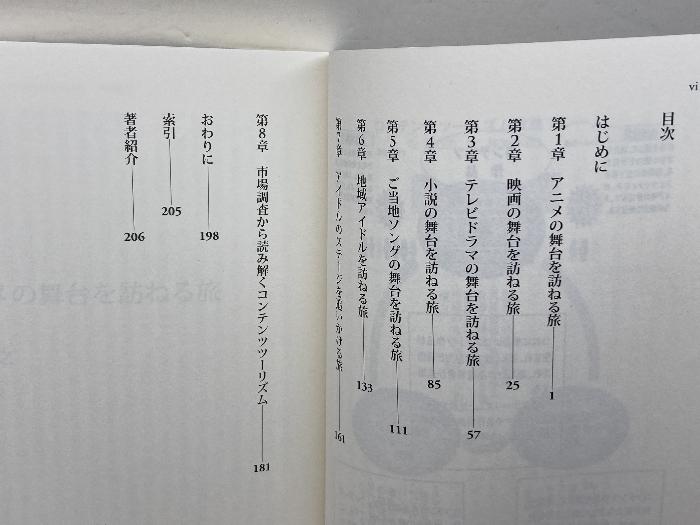 vi
目次
はじめに
第1章 アニメの舞台を訪ねる旅 1
第2章 映画の舞台を訪ねる旅 25
第3章 テレビドラマの舞台を訪ねる旅 57
第4章 小説の舞台を訪ねる旅 85
第5章 ご当地ソングの舞台を訪ねる旅 111
第6章 地域アイドルを訪ねる旅 133
第7章 アイドルのステージを追いかける旅 161
第8章 市場調査から読み解くコンテンツツーリズム 181
おわりに 198
索引 205
著者紹介 206
の舞台を訪ねる旅